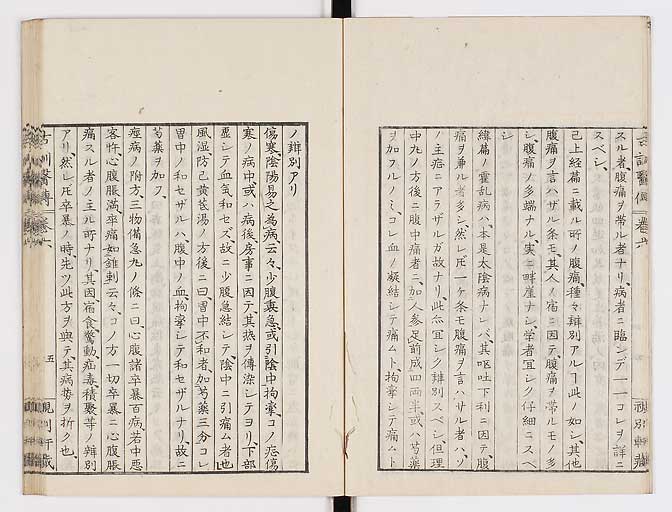 スル者、腹痛ヲ帯ル者ナリ、病者ニ臨ンデ一一コレヲ詳ニ
スベシ、
己上経篇ニ載ル所ノ腹痛種々辨別アルヿ此ノ如シ、其他
腹痛ヲ言ハザル条モ、其人ノ宿ニ因テ腹痛ヲ帯ルモノ多
シ、腹痛ノ多端ナル、実ニ畔崖ナシ、学者宜シク仔細ニスベ
シ
緯篇ノ霍乱病ハ、本是太陰病ナレバ、其嘔吐下利ニ因テ、腹
痛ヲ兼ル者多シ、然レ𪜈一ケ条モ腹痛ヲ言ハザル者ハ、ソ
ノ主症ニアラザルガ故ナリ、此亦宜シク辨別スベシ、但理
中丸ノ方後ニ腹中痛者ニ、加人参足前成四両半、或ハ芍薬
ヲ加フルノミ、コレ血ノ凝結シテ痛ムト、拘攣シテ痛ムト
ノ辨別アリ
傷寒陰陽易之為病云々、少腹裏急或引陰中拘攣、コノ症傷
寒ノ病中、或ハ病後、房事ニ因テ、其熱ヲ傳染シテヨリ、下部
虚シテ血気和セズ、故ニ少腹急結シテ、陰中ニ引痛ム者也
風湿、防己黄芪湯ノ方後ニ曰胃中不和者、加芍薬三分コレ
胃中ノ和セザルハ腹中ノ血、拘攣シテ和セザルナリ、故ニ
芍薬ヲ加フ、
痙病ノ附方、三物備急丸ノ條ニ曰、心腹諸卒暴百病、若中悪
客忤、心腹脹満、卒痛如錐刺云々、コノ方一切卒暴ニ心腹脹
痛スル者ノ主ル所ナリ、其因宿食驚動疝毒積聚等ノ辨別
アリ、然レ𪜈卒暴ノ時、先ツ此方ヲ與テ、其病勢ヲ折ク也、
古訓醫傳 巻六
五